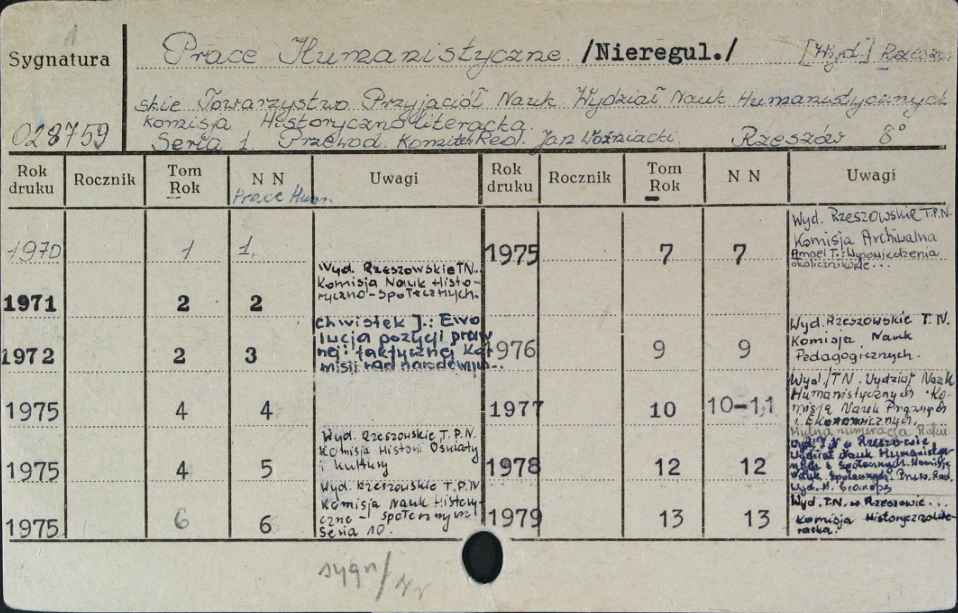 1
Sygnatura
Prace Humanistyczne /Nieregul./ [Wyd.] Rzeszow-
skie Towarzystwo Przyjaciół Nauk Wydział Nauk Humanistycznych
Komisja Historycznoliteracka.
028759 Seria 1. Przewod. Komitet Red. Jan Woźniacki. Rzeszów 8°
Rok druku Rocznik Tom Rok N N Uwagi Rok druku Rocznik Tom Rok N N Uwagi
Prace Hum.
1970 1 1.
1971 2 2 Wyd. Rzeszowskie TN.
Komisja Nauk Histo-
ryczno-społecznych.
1972 2 3 Chwistek J.: Ewo
lucja pozycji praw
nej i faktycznej Ko
misji rad narodowych...
1975 4 4
1975 4 5 Wyd. Rzeszowskie T.P.N.
Komisja Histori Oświaty
i Kultury
1975 6 6 Wyd. Rzeszowskie T.P.N
Komisja Nauk History-
czno-społecznych
Seria 10.
1975 7 7 Wyd. Rzeszowskie T.P.N.
Komisja Archiwalna
T.: Wypowiedzenia
okolicznikowe...
1976 9 9 Wyd. Rzeszowskie T.N.
Komisja Nauk
Pedagogicznych.
1977 10 10-11 Wyd. TN. Wydział Nauk
Humanistycznych Ko-
misja Nauk Prawnych
i Ekonomicznych.
Mylna numeracja
1978 12 12 Wyd. T.N w Rzeszowie
Wydział Nauk Humanisty-
cznych i Społecznych. Komisja
Nauk Społecznych.
Wyd.
1979 13 13 Wyd. T.N. w Rzeszowie...
Komisja Historycznolite-
racka.
sygn/